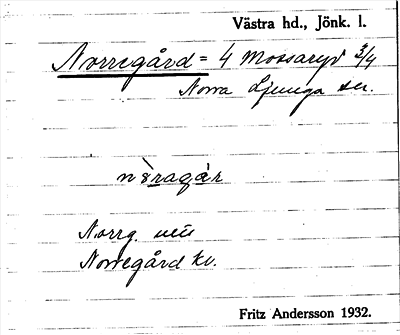 Västra hd., Jönk. l.
Norregård = 4 Mossaryd 3/4
Norra Ljunga sn.
Norrg.
Norregård kv.
Fritz Andersson 1932.